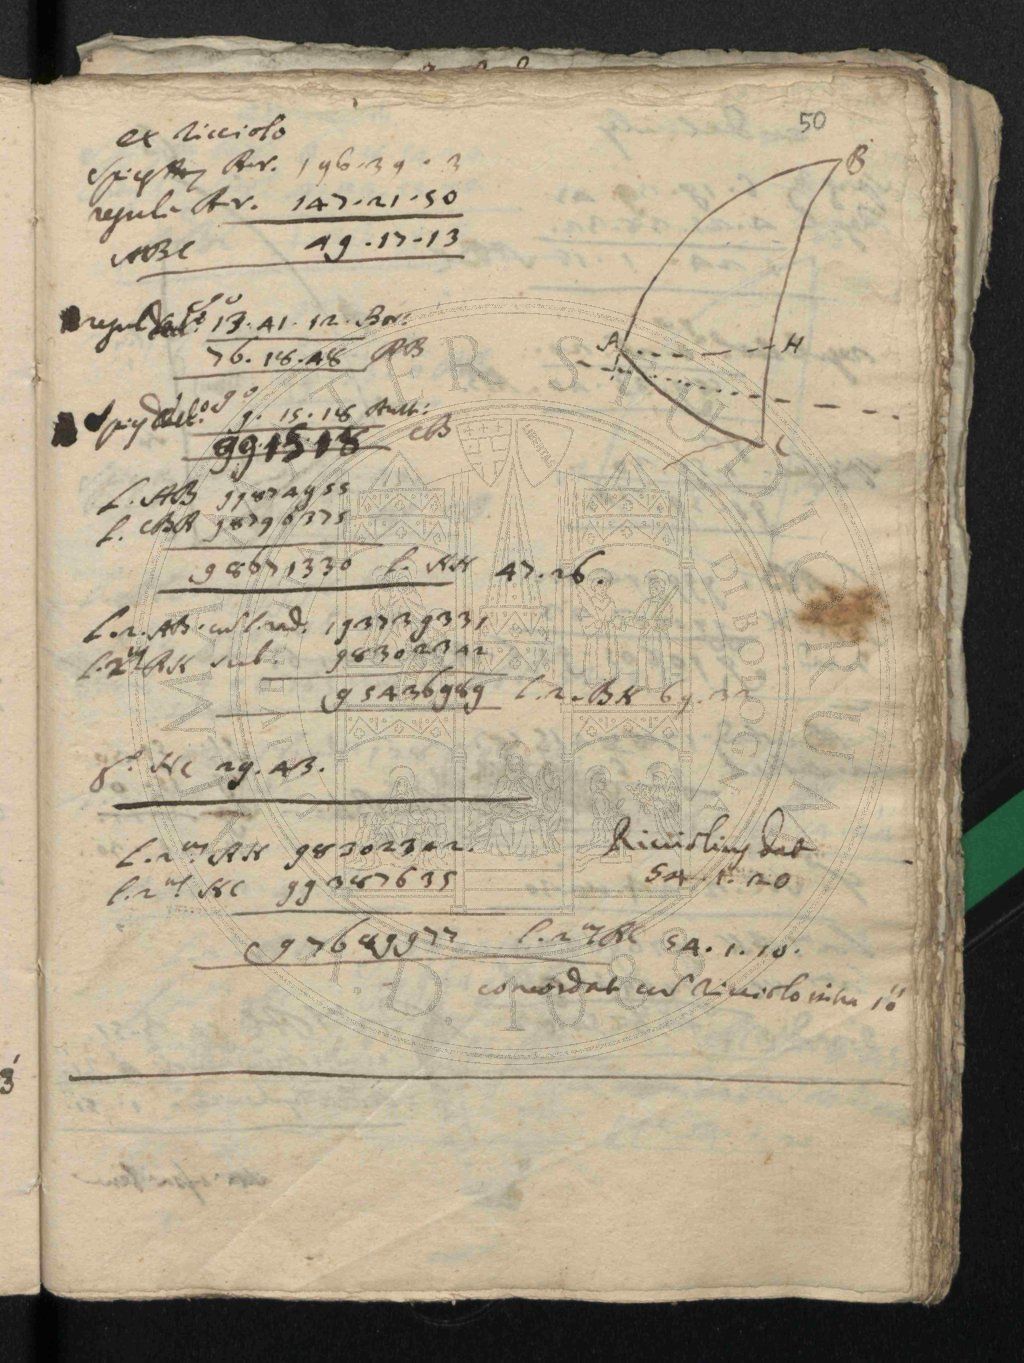 50
ex Ricciolo
Spicę A.r. 196.39.3
reguli A.r. 147.21.50
ABC 49.17.13
reguli decl.º 13.41.12. Bor:
76.18.48 AB
Spicę decl.º 9.15.18 Aust:
99 15 18 CB
L. AB 99874955
L. CBA 98796375
98671330 L. AH 47.26.
L.2. AB. cum L. rad. 193739331
L.2ⁱ AH sub. 98302342
95436989 L.2. BH 69.32
gº HC 29.43.
L.2ⁱ AH 98302342.
L.2ⁱ HC 99387635
97689977 L.2ⁱ AC 54.1.10.
Ricciolius dat
54.1.20
concordat cum Ricciolo intra 10"
B
A H
C
3
SIGILLUM